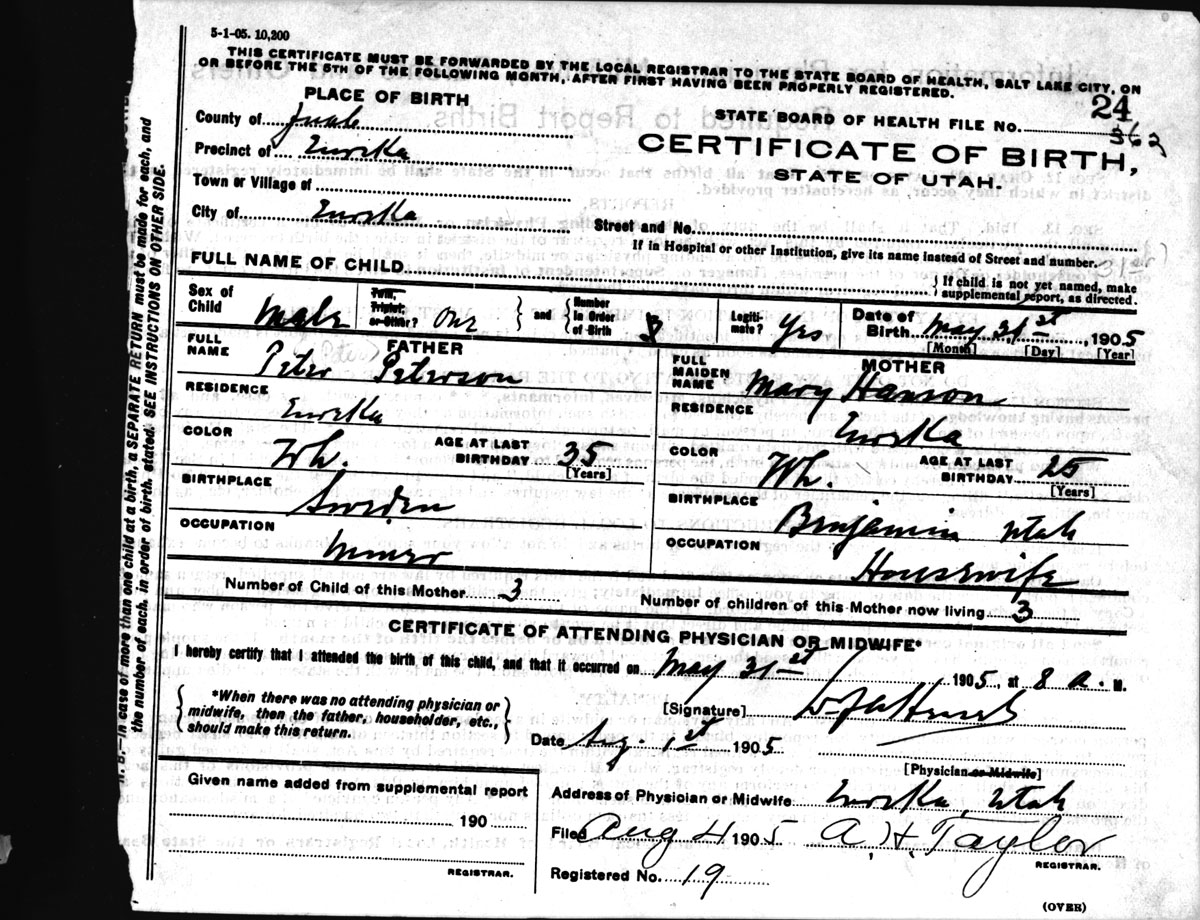 5-1-05. 10,200
THIS CERTIFICATE MUST BE FORWARDED BY THE LOCAL REGISTRAR TO THE STATE BOARD OF HEALTH, SALT LAKE CITY, ON
OR BEFORE THE 5TH OF THE FOLLOWING MONTH, AFTER FIRST HAVING BEEN PROPERLY REGISTERED.
PLACE OF BIRTH
County of Juab
Precinct of Eureka
Town or Village of
City of Eureka
24
STATE BOARD OF HEALTH FILE No. 362
CERTIFICATE OF BIRTH,
STATE OF UTAH.
Street and No.
If in Hospital or other Institution, give its name instead of Street and number.
FULL NAME OF CHILD
31st
If child is not yet named, make
supplemental report, as directed.
Sex of Child Male
Twin, Triplet, or Other? One
and Number in Order of Birth
Legitimate? Yes
Date of Birth May 31st 1905
[Month] [Day] [Year]
FATHER
FULL NAME Peter Peterson
RESIDENCE
Eureka
COLOR Wh. AGE AT LAST BIRTHDAY 35
[Years]
BIRTHPLACE
Sweden
OCCUPATION
Miner
MOTHER
FULL MAIDEN NAME Mary Hanson
RESIDENCE
Eureka
COLOR Wh. AGE AT LAST BIRTHDAY 25
[Years]
BIRTHPLACE Benjamin Utah
OCCUPATION
Housewife
Number of Child of this Mother 3
Number of children of this Mother now living 3
CERTIFICATE OF ATTENDING PHYSICIAN OR MIDWIFE*
I hereby certify that I attended the birth of this child, and that it occurred on May 31st 1905, at 8 a. M.
*When there was no attending physician or
midwife, then the father, householder, etc.,
should make this return.
[Signature]
Date Aug 1st 1905
[Physician or Midwife]
Given name added from supplemental report
190
REGISTRAR.
Address of Physician or Midwife Eureka, Utah
Filed Aug 4 1905 A. H. Taylor
REGISTRAR.
Registered No. 19
(OVER)
N. B.—In case of more than one child at a birth, a SEPARATE RETURN must be made for each, and
the number of each, in order of birth, stated. SEE INSTRUCTIONS ON OTHER SIDE.